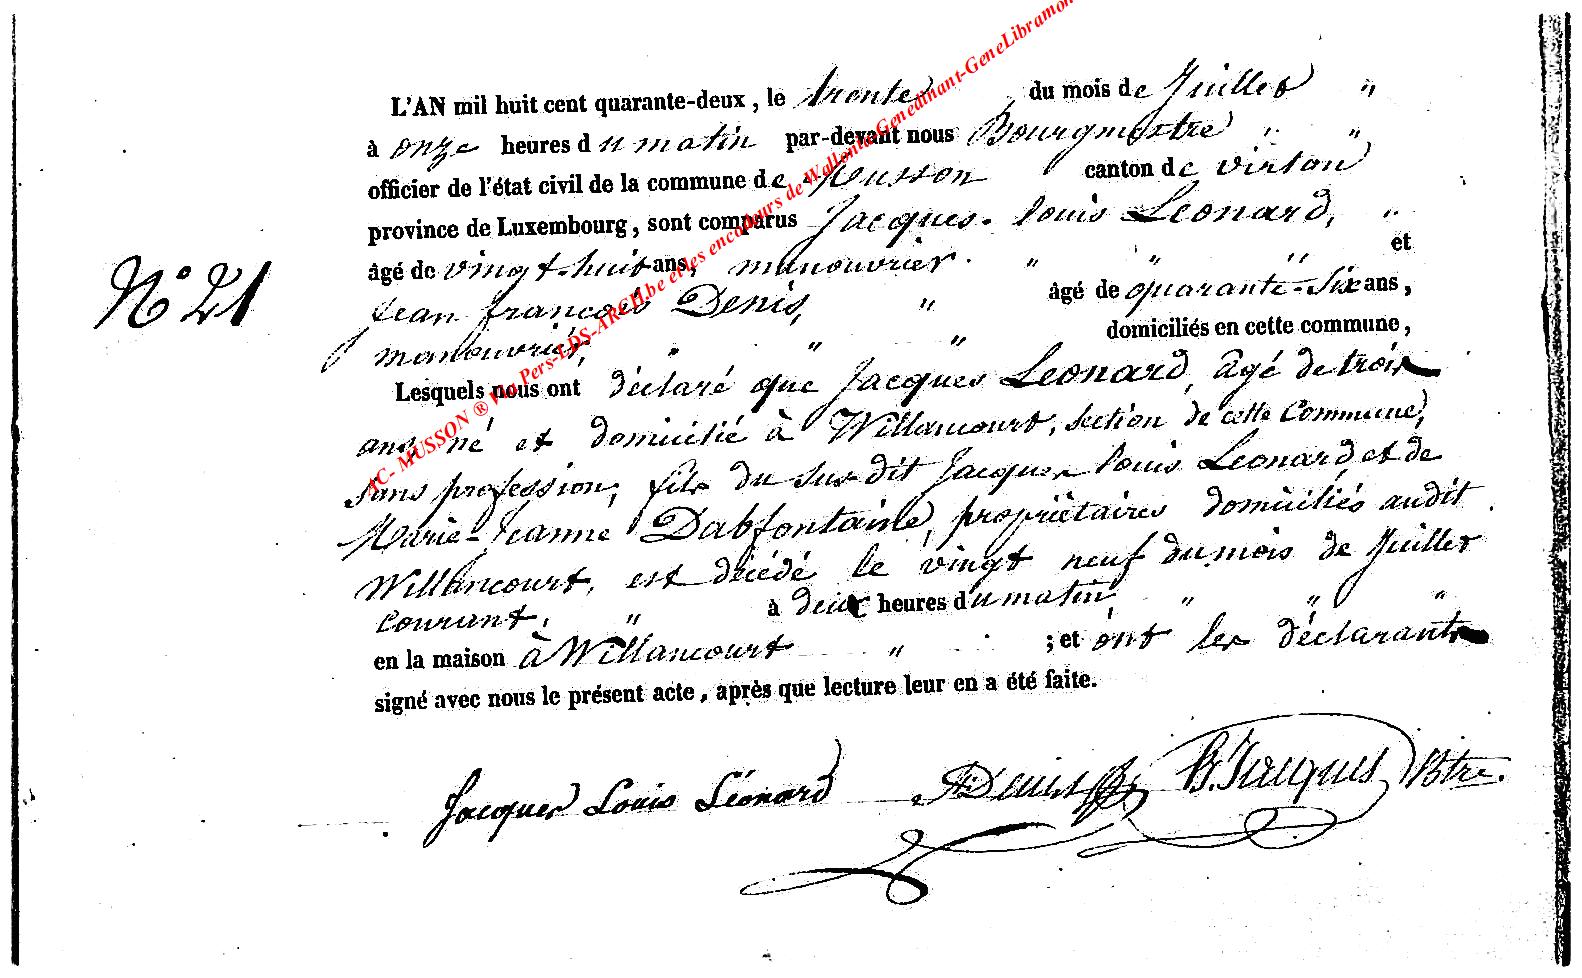 L'AN mil huit cent quarante-deux, le trente du mois de Juillet "
à onze heures du matin par-devant nous Bourgmestre " "
officier de l'état civil de la commune de Musson canton de virton
province de Luxembourg, sont comparus Jacques-louis Leonard, "
âgé de vingt-huit ans, manouvrier. " " " et
Jean françois Denis, " âgé de quarante-six ans,
manouvrier, " " " domiciliés en cette commune,
N° 21
Lesquels nous ont déclaré que Jacques Leonard, agé de trois
ans, né et domicilié à Willancourt, section de cette Commune,
sans profession, fils du sus dit Jacques louis Leonard, et de
Marie-Jeanne Dabfontaine, propriètaires domiciliés audit
Willancourt, est décédé le vingt neuf du mois de Juillet
courant, " à deux heures du matin, " " "
en la maison à Willancourt " ; et ont les déclarants
signé avec nous le présent acte, après que lecture leur en a été faite.
Jacques Louis Léonard Denis B. Jacques Bstre.
JC- MUSSON ® Via Pers-LDS-ARCH.be et les encodeurs de Wallonie-Genedinant-GeneLibramon